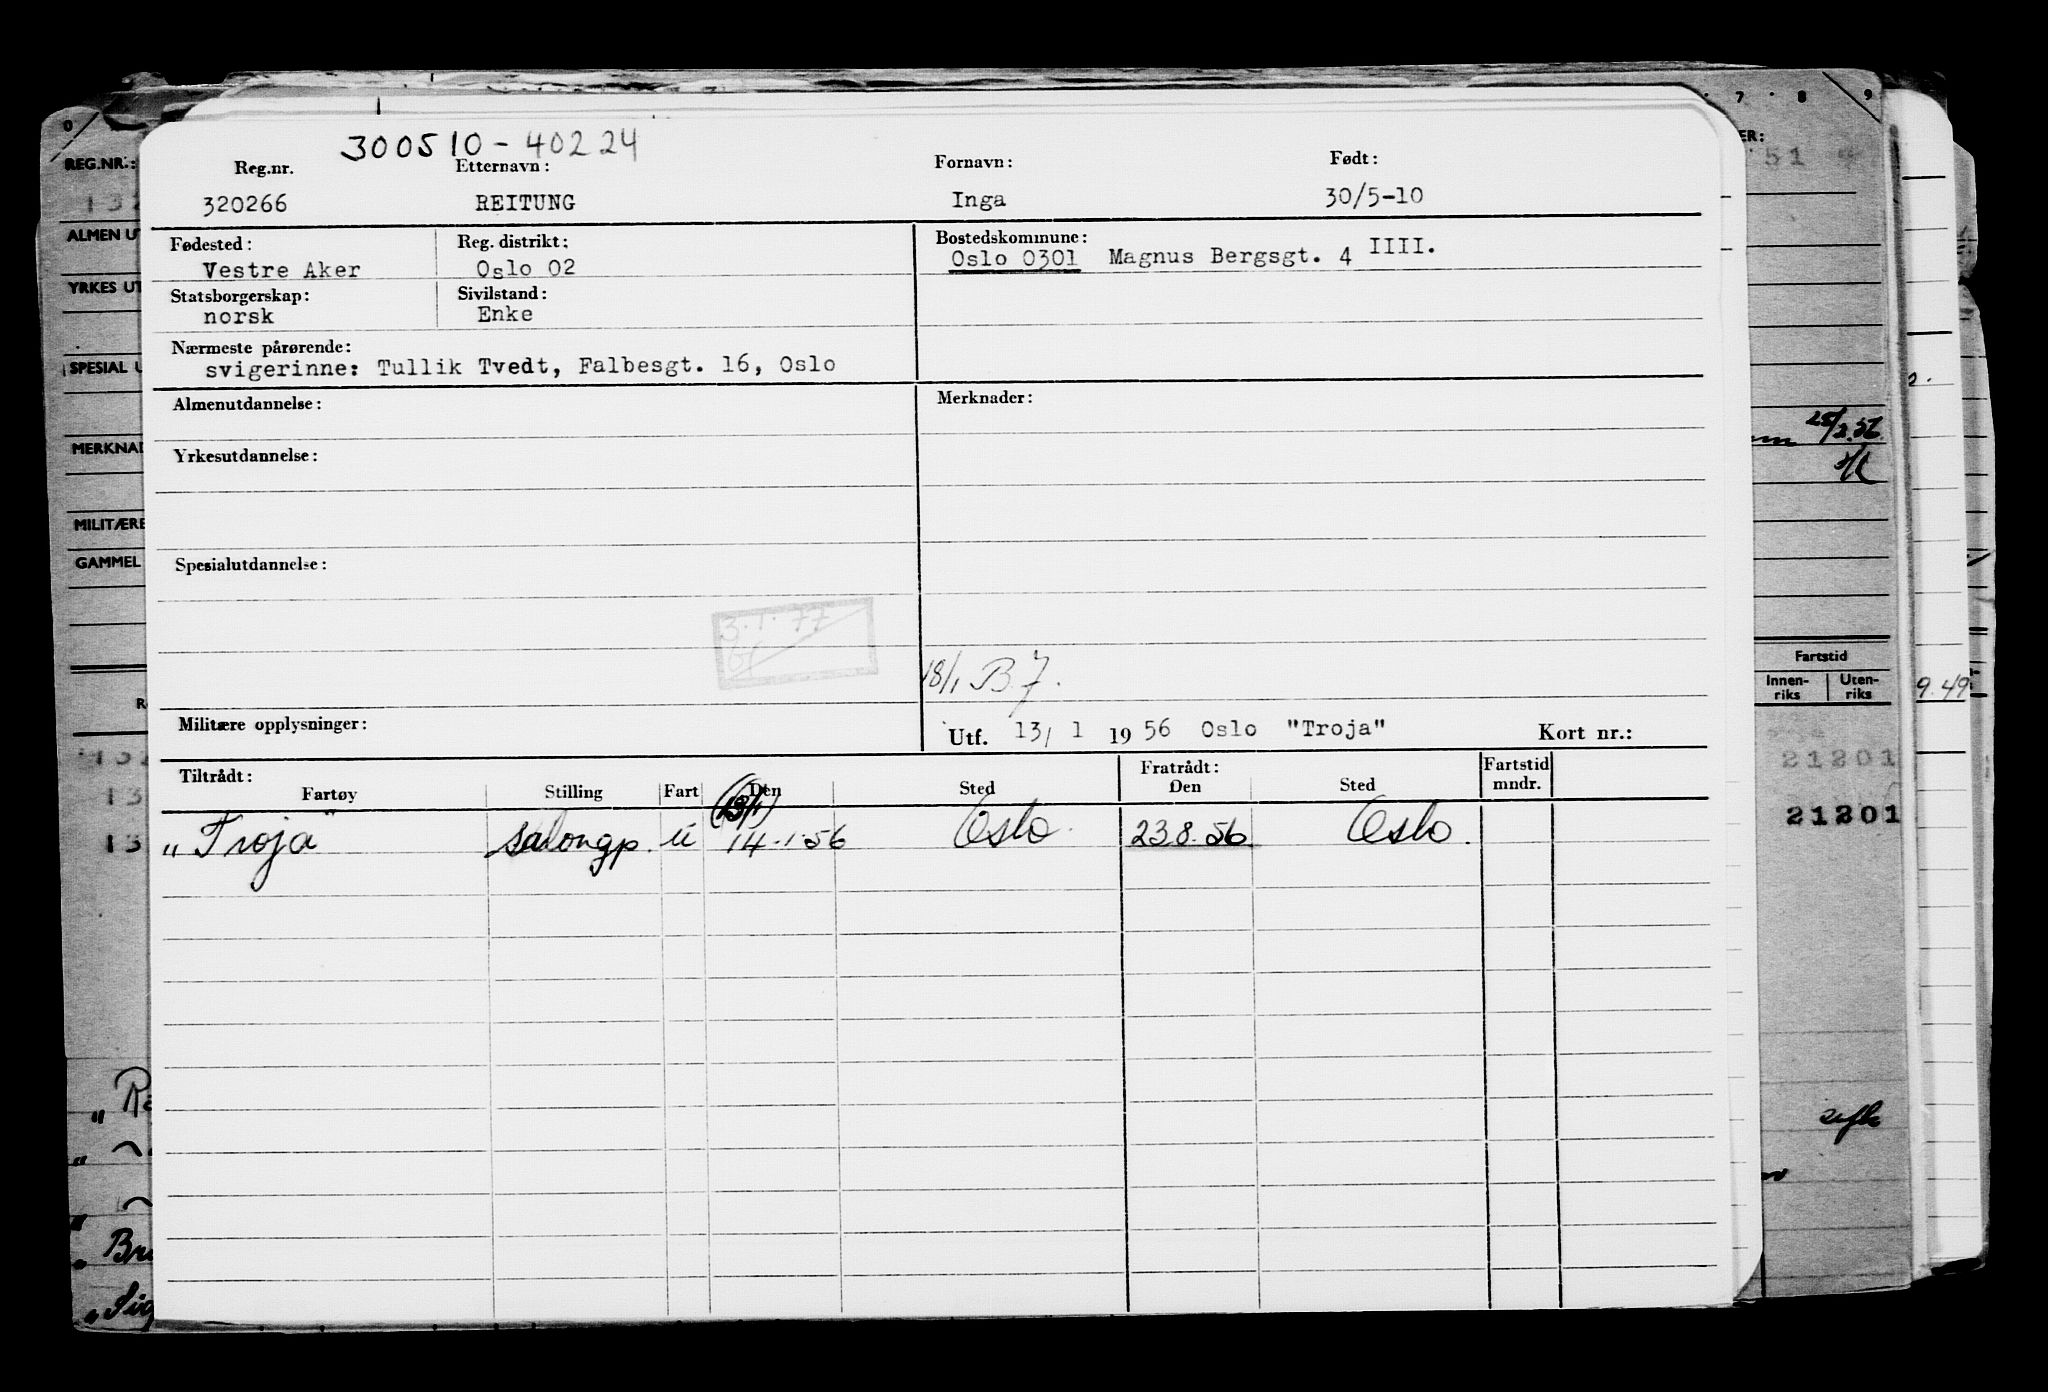 300510-40224
Reg.nr. Etternavn: Fornavn: Født:
320266 REITUNG Inga 30/5-10
Fødested: Reg. distrikt: Bostedskommune:
Vestre Aker Oslo 02 Oslo 0301 Magnus Bergsgt. 4 IIII.
Statsborgerskap: Sivilstand:
norsk Enke
Nærmeste pårørende:
svigerinne: Tullik Tvedt, Falbesgt. 16, Oslo
Almenutdannelse: Merknader:
Yrkesutdannelse:
Spesialutdannelse:
3.1.77
18/1 B.J.
Militære opplysninger: Utf. 13/ 1 1956 Oslo "Troja" Kort nr.:
Tiltrådt: Fratrådt: Fartstid
Fartøy Stilling Fart Den Sted Den Sted mndr.
(13/1)
"Troja" salongp. U 14.1.56 Oslo. 23.8.56 Oslo.
0
REG.NR.:
132
ALMEN UT
YRKES UT
SPESIAL U
MERKNAD
MILITÆRE
GAMMEL
R
13
13
" Ra
"
"
" Bru
" Sig
7 8 9
ER:
51
25/2.56
Fartstid
Innen-riks Uten-riks
9.49
21201
21201